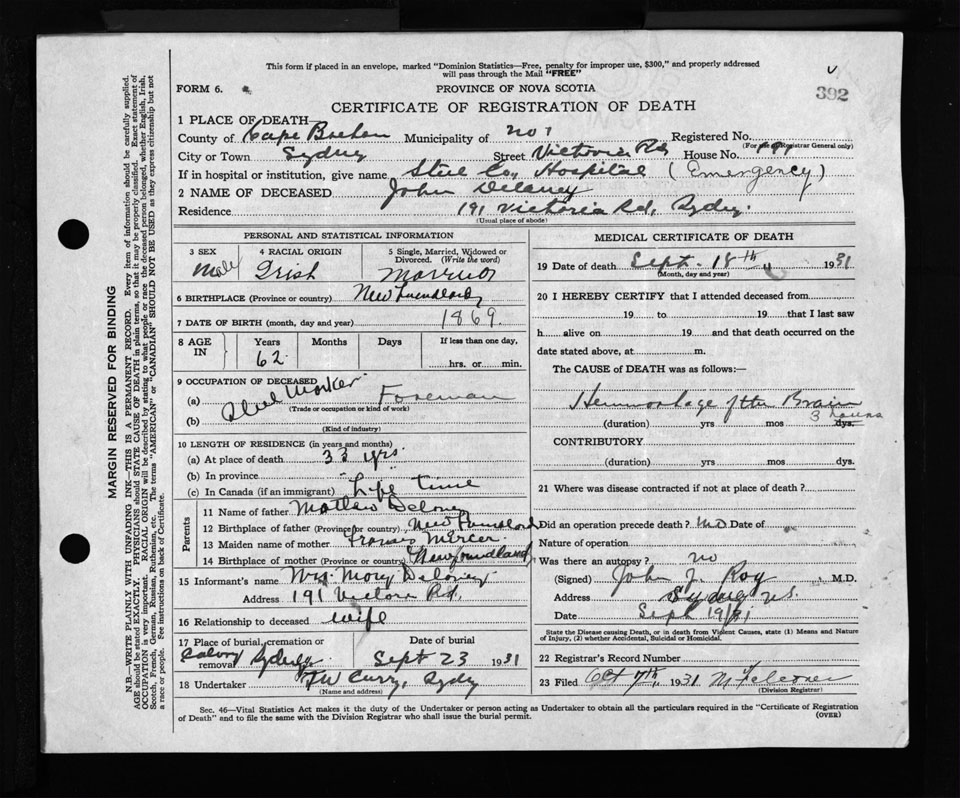 This form if placed in an envelope, marked "Dominion Statistics—Free, penalty for improper use, $300," and properly addressed
will pass through the Mail "FREE"
FORM 6.
PROVINCE OF NOVA SCOTIA
392
CERTIFICATE OF REGISTRATION OF DEATH
1 PLACE OF DEATH
County of Cape Breton Municipality of No 1 Registered No.
(For use of Registrar General only)
City or Town Sydney Street Victoria Rd House No.
If in hospital or institution, give name Steel Co., Hospital (Emergency)
2 NAME OF DECEASED John Delaney
Residence 191 Victoria Rd, Sydney.
(Usual place of abode)
PERSONAL AND STATISTICAL INFORMATION
3 SEX 4 RACIAL ORIGIN 5 Single, Married, Widowed or
Divorced. (Write the word)
Male Irish Married
6 BIRTHPLACE (Province or country) New Foundland
7 DATE OF BIRTH (month, day and year) 1869.
8 AGE IN Years Months Days If less than one day,
62 hrs. or min.
9 OCCUPATION OF DECEASED
(a) Steel Worker Foreman
(Trade or occupation or kind of work)
(b)
(Kind of industry)
10 LENGTH OF RESIDENCE (in years and months)
(a) At place of death 33 yrs.
(b) In province
(c) In Canada (if an immigrant) Life time
Parents
11 Name of father Delaney
12 Birthplace of father (Province or country) New Foundland
13 Maiden name of mother Frances Mercer
14 Birthplace of mother (Province or country) Newfoundland
15 Informant's name Mrs. Mary Delaney
Address 191 Victoria Rd.
16 Relationship to deceased wife
17 Place of burial, cremation or removal Sydney Date of burial
Sept 23 1931
18 Undertaker Curry, Sydney
(Name and address)
MEDICAL CERTIFICATE OF DEATH
19 Date of death Sept. 18th 1931
(Month, day and year)
20 I HEREBY CERTIFY that I attended deceased from
19 to 19 that I last saw
h alive on 19 and that death occurred on the
date stated above, at m.
The CAUSE of DEATH was as follows:—
Hemmorhage of the Brain
(duration) yrs mos dys. 3 hours
CONTRIBUTORY
(duration) yrs mos dys.
21 Where was disease contracted if not at place of death?
Did an operation precede death? No Date of
Nature of operation
Was there an autopsy? no
(Signed) John J. Roy M.D.
Address Sydney N.S.
Date Sept 19/31
State the Disease causing Death, or in death from Violent Causes, state (1) Means and Nature
of Injury, (2) whether Accidental, Suicidal or Homicidal.
22 Registrar's Record Number
23 Filed Oct 7th, 1931
(Division Registrar)
Sec. 46—Vital Statistics Act makes it the duty of the Undertaker or person acting as Undertaker to obtain all the particulars required in the "Certificate of Registration
of Death" and to file the same with the Division Registrar who shall issue the burial permit.
(OVER)
MARGIN RESERVED FOR BINDING
N.B.—WRITE PLAINLY WITH UNFADING INK—THIS IS A PERMANENT RECORD. Every item of information should be carefully supplied.
AGE should be stated EXACTLY. PHYSICIANS should STATE CAUSE OF DEATH in plain terms, so that it may be properly classified. Exact statement of
OCCUPATION is very important. RACIAL ORIGIN will be described by stating to what people or race the deceased person belonged, whether English, Irish,
Scotch, French, German, Russian, Ruthenian, etc. The terms "AMERICAN" or "CANADIAN" SHOULD NOT BE USED as they express citizenship but not
a race or people. See instructions on back of Certificate.